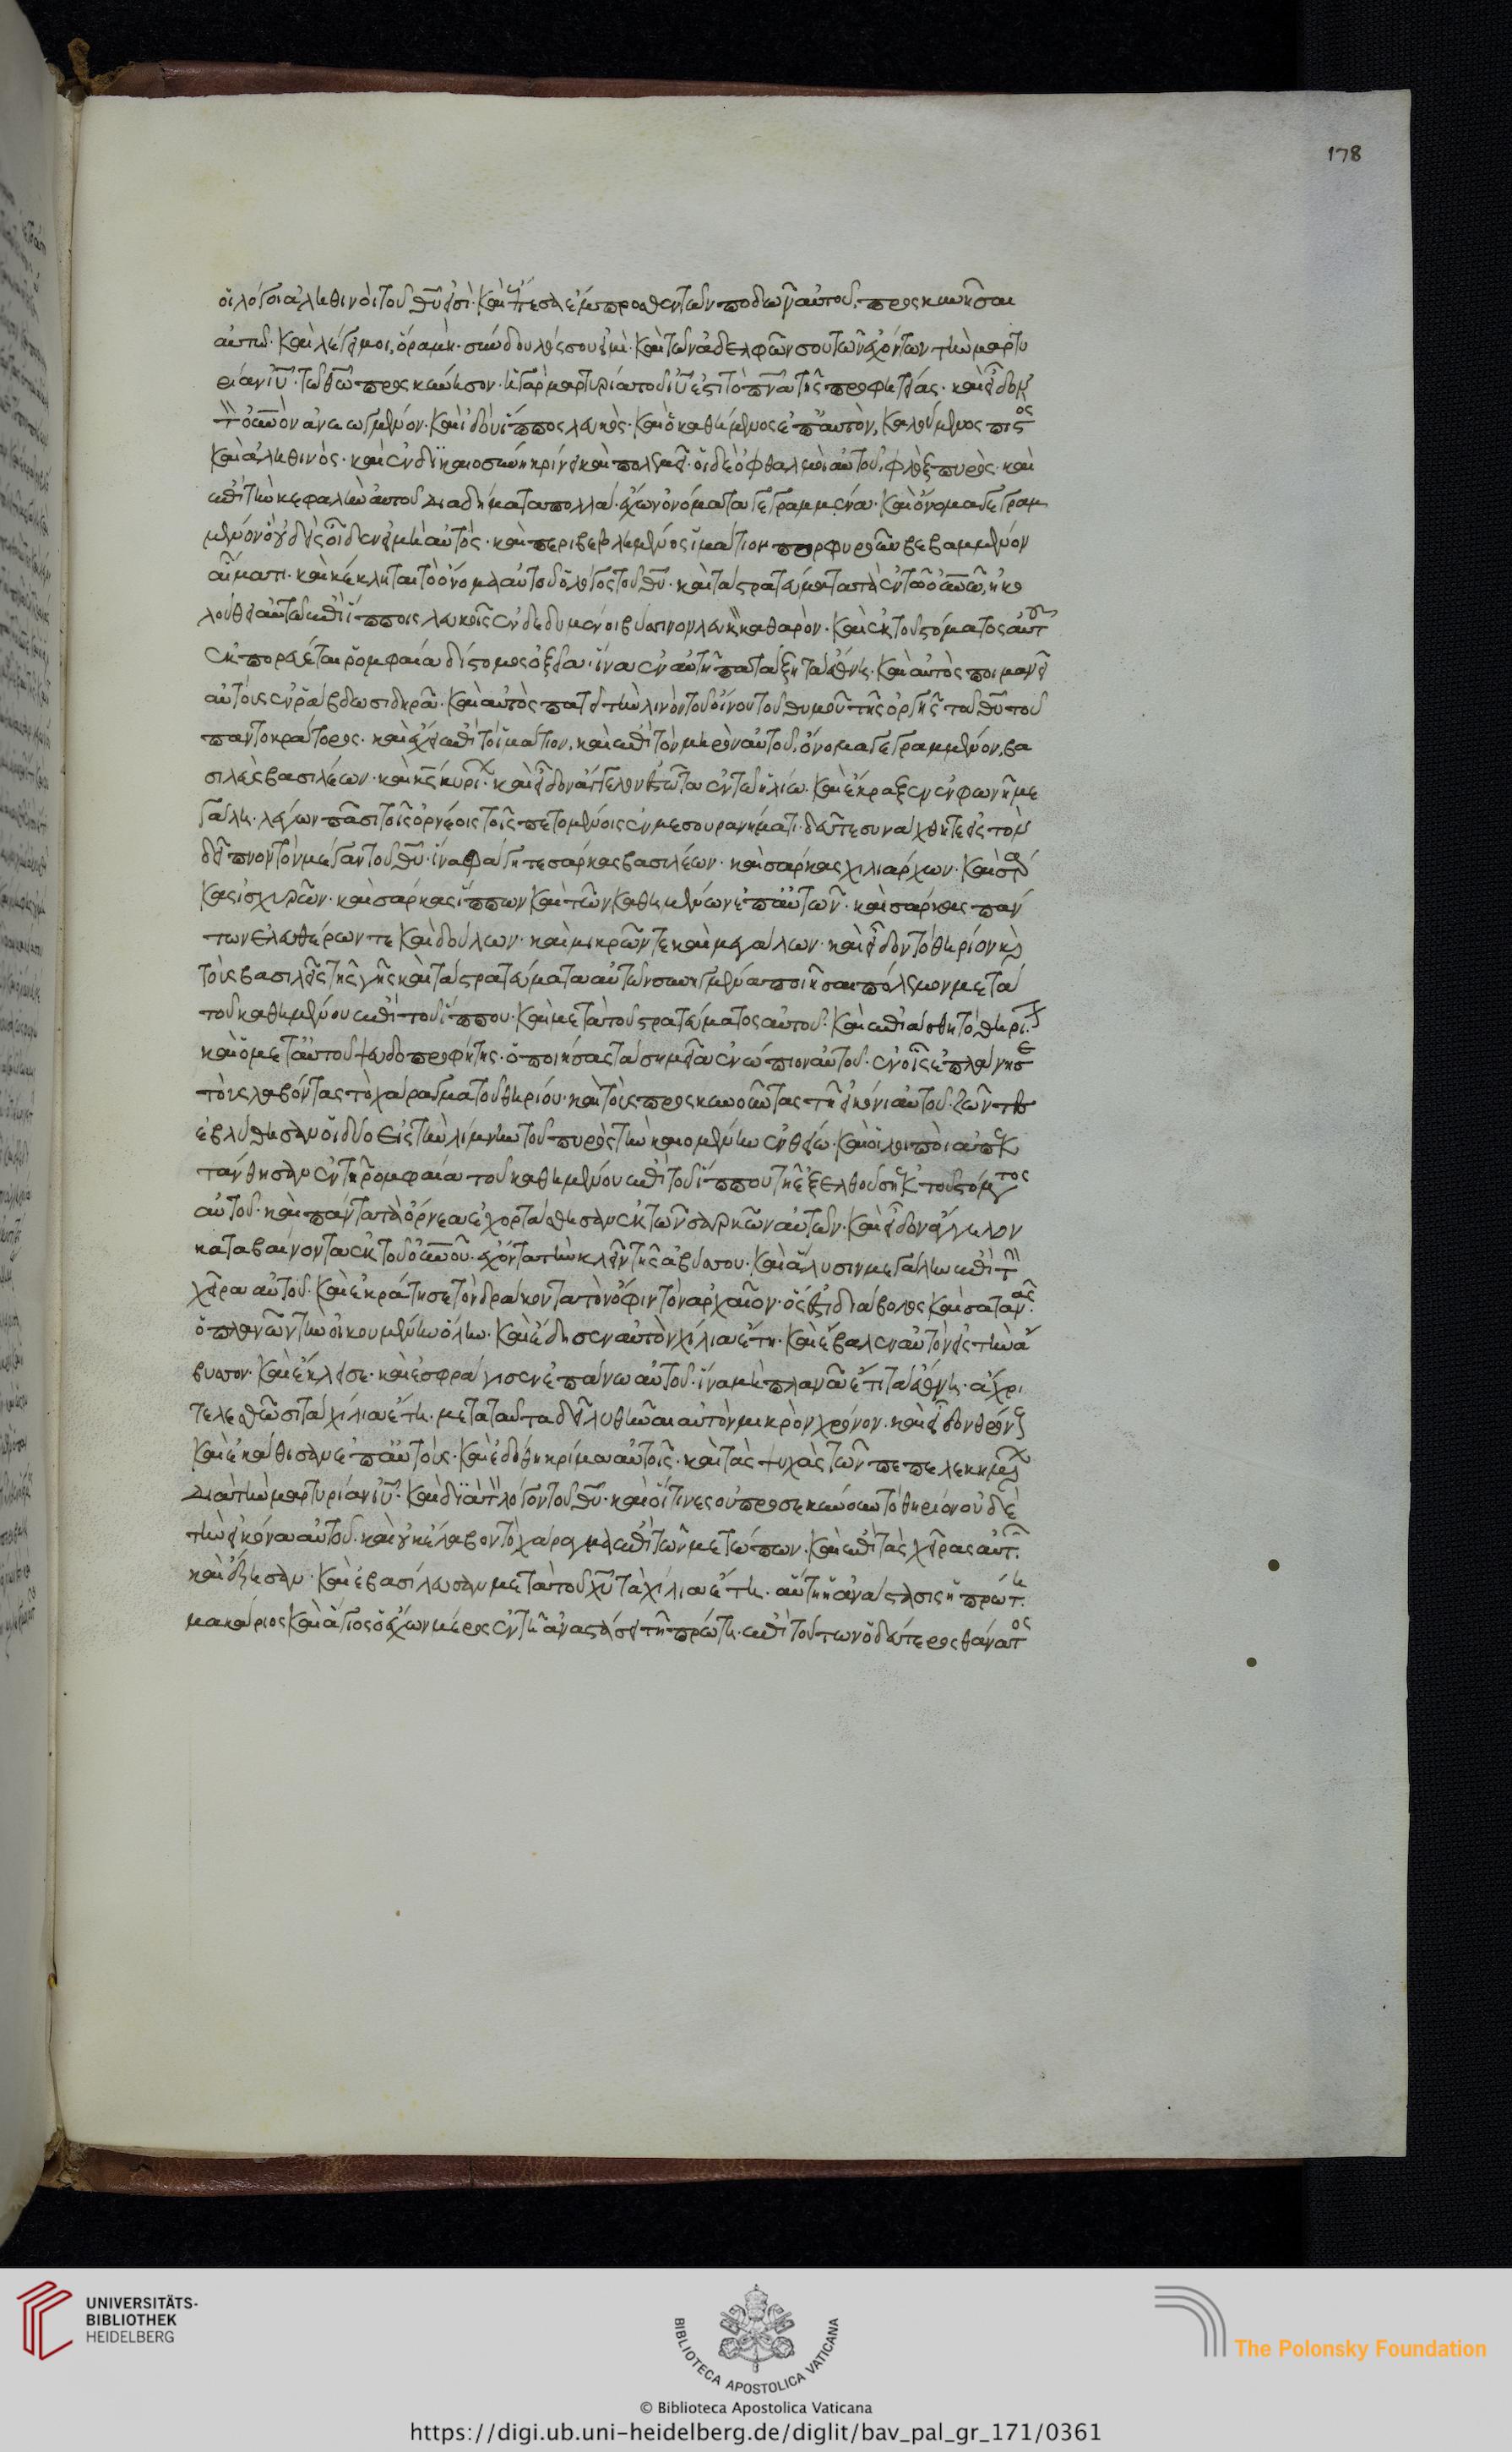 178
οἱ λόγοι ἀληθινοὶ τοῦ θυ εἰσὶ. καὶ ἔπεσα ἔμπροσθεν τῶν ποδῶν αὐτοῦ, προσκυνῆσαι
αὐτῶ. καὶ λέγει μοι, ὅρα μὴ. σύνδουλός σου εἰμὶ. καὶ τῶν ἀδελφῶν σου τῶν ἐχόντων τὴν μαρτυ
ρίαν ιυ. τῶ θω προσκύνησον. ἡ γὰρ μαρτυρία τοῦ ιυ ἐστι τὸ πνα τῆς προφητείας. καὶ εἶδον
τὸν οὐνον ἀνεωγμένον. καὶ ἰδοὺ ἵππος λευκὸς. καὶ ὁ καθήμενος ἐπ' αὐτὸν, καλούμενος πιστος
καὶ ἀληθινὸς. καὶ ἐν δικαιοσύνη κρίνει καὶ πολεμεῖ. οἱ δὲ ὀφθαλμοὶ αὐτοῦ, φλὸξ πυρὸς. καὶ
ἐπὶ τὴν κεφαλὴν αὐτοῦ διαδήματα πολλά. ἔχων ὀνόματα γεγραμμένα. καὶ ὄνομα γεγραμ
μένον ὃ οὐδεὶς οἶδεν εἰ μὴ αὐτὸς. καὶ περιβεβλημένος ἱμάτιον πορφυροῦν βεβαμμένον
αἵματι. καὶ κέκληται τὸ ὄνομα αὐτοῦ ὁ λόγος τοῦ θυ. καὶ τὰ στρατεύματα τὰ ἐν τῶ οὐνω, ἠκο
λούθει αὐτῶ ἐπὶ ἵπποις λευκοῖς ἐνδεδυμένοι βύσσινον λευκὸν καθαρὸν. καὶ ἐκ τοῦ στόματος αὐτοῦ
ἐκπορεύεται ῥομφαία δίστομος ὀξεῖα. ἵνα ἐν αὐτῆ πατάξη τὰ ἔθνη. καὶ αὐτὸς ποιμανεῖ
αὐτοὺς ἐν ῥάβδω σιδηρᾶ. καὶ αὐτὸς πατεῖ τὴν ληνὸν τοῦ οἴνου τοῦ θυμοῦ τῆς ὀργῆς τοῦ θυ τοῦ
παντοκράτορος. καὶ ἔχει ἐπὶ τὸ ἱμάτιον, καὶ ἐπὶ τὸν μηρὸν αὐτοῦ, ὄνομα γεγραμμένον, βα
σιλεὺς βασιλέων. καὶ κς κυρίων. καὶ εἶδον ἄγγελον ἑστῶτα ἐν τῶ ἡλίω. καὶ ἔκραξεν ἐν φωνῆ με
γάλη. λέγων πᾶσι τοῖς ὀρνέοις τοῖς πετομένοις ἐν μεσουρανήματι. δεῦτε συνάχθητε εἰς τὸν
δεῖπνον τὸν μέγαν τοῦ θυ. ἵνα φάγητε σάρκας βασιλέων. καὶ σάρκας χιλιάρχων. καὶ σάρ
κας ἰσχυρῶν. καὶ σάρκας ἵππων καὶ τῶν καθημένων ἐπ' αὐτῶν. καὶ σάρκας πάν
των ἐλευθέρων τε καὶ δούλων. καὶ μικρῶν τε καὶ μεγάλων. καὶ εἶδον τὸ θηρίον κὶ
τοὺς βασιλεῖς τῆς γῆς καὶ τὰ στρατεύματα αὐτῶν συνηγμένα ποιῆσαι πόλεμον μετὰ
τοῦ καθημένου ἐπὶ τοῦ ἵππου. καὶ μετὰ τοῦ στρατεύματος αὐτοῦ. καὶ ἐπιάσθη τὸ θηρίον
καὶ ὁ μετ' αὐτοῦ ψευδοπροφήτης. ὁ ποιήσας τὰ σημεῖα ἐνώπιον αὐτοῦ. ἐν οἷς ἐπλάνησε
τοὺς λαβόντας τὸ χάραγμα τοῦ θηρίου. καὶ τοὺς προσκυνοῦντας τῆ εἰκόνι αὐτοῦ. ζῶντες
ἐβλήθησαν οἱ δύο εἰς τὴν λίμνην τοῦ πυρὸς τὴν καιομένην ἐν θείω. καὶ οἱ λοιποὶ ἀπεκ
τάνθησαν ἐν τῆ ῥομφαία τοῦ καθημένου ἐπὶ τοῦ ἵππου τῆ ἐξελθούση ἐκ τοῦ στόματος
αὐτοῦ. καὶ πάντα τὰ ὄρνεα ἐχορτάσθησαν ἐκ τῶν σαρκῶν αὐτῶν. καὶ εἶδον ἄγγελον
καταβαίνοντα ἐκ τοῦ οὐνου. ἔχοντα τὴν κλεῖν τῆς ἀβύσσου. καὶ ἅλυσιν μεγάλην ἐπὶ τὴν
χεῖρα αὐτοῦ. καὶ ἐκράτησε τὸν δράκοντα τὸν ὄφιν τὸν ἀρχαῖον. ὅς ἐστι διάβολος καὶ σατανᾶς.
ὁ πλανῶν τὴν οἰκουμένην ὅλην. καὶ ἔδησεν αὐτὸν χίλια ἔτη. καὶ ἔβαλεν αὐτὸν εἰς τὴν ἄ
βυσσον. καὶ ἔκλεισε. καὶ ἐσφράγισεν ἐπάνω αὐτοῦ. ἵνα μὴ πλανᾶ ἔτι τὰ ἔθνη. ἄχρι
τελεσθῶσι τὰ χίλια ἔτη. μετὰ ταῦτα δεῖ λυθῆναι αὐτὸν μικρὸν χρόνον. καὶ εἶδον θρόνους
καὶ ἐκάθισαν ἐπ' αὐτοὺς. καὶ ἐδόθη κρίμα αὐτοῖς. καὶ τὰς ψυχὰς τῶν πεπελεκημένων
διὰ τὴν μαρτυρίαν ιυ. καὶ διὰ τὸν λόγον τοῦ θυ. καὶ οἵτινες οὐ προσεκύνουν τὸ θηρίον οὐδὲ
τὴν εἰκόνα αὐτοῦ. καὶ οὐκ ἔλαβον τὸ χάραγμα ἐπὶ τῶν μετώπων. καὶ ἐπὶ τὰς χεῖρας αὐτῶν.
καὶ ἔζησαν. καὶ ἐβασίλευσαν μετὰ τοῦ χυ τὰ χίλια ἔτη. αὕτη ἡ ἀνάστασις ἡ πρώτη.
μακάριος καὶ ἅγιος ὁ ἔχων μέρος ἐν τῆ ἀναστάσει τῆ πρώτη. ἐπὶ τούτων ὁ δεύτερος θάνατος
UNIVERSITÄTS-
BIBLIOTHEK
HEIDELBERG
BIBLIOTECA APOSTOLICA VATICANA
The Polonsky Foundation
© Biblioteca Apostolica Vaticana
https://digi.ub.uni-heidelberg.de/diglit/bav_pal_gr_171/0361